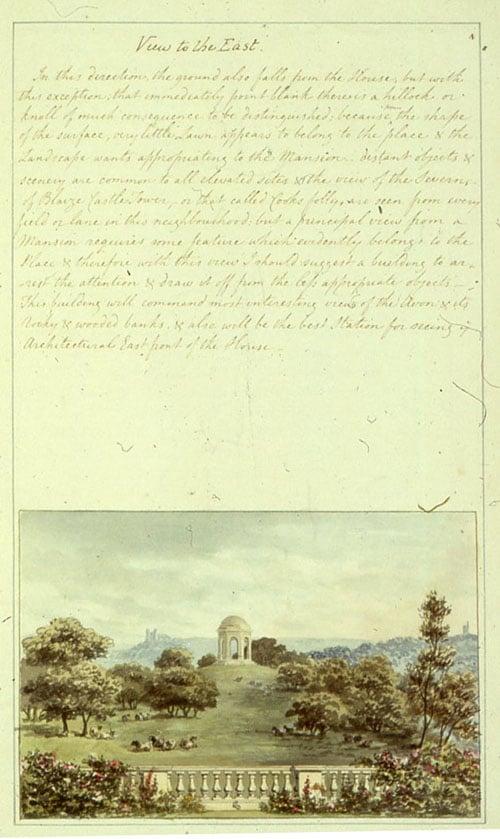 View to the East.
In this direction, the ground also falls from the House, but with
this exception, that immediately point blank there is a hillock or
knoll of much consequence to be distinguished; because from the shape
of the surface, very little Lawn appears to belong to the place & the
Landscape wants appropriating to the Mansion. distant objects &
scenery are common to all elevated sites & the view of the Severn,
of Blaize Castle Tower, or that called Cooks folly, are seen from every
field or lane in this neighbourhood: but a principal view from a
Mansion requires some feature which evidently belongs to the
Place & therefore with this view I should suggest a building to ar-
rest the attention & draw it off from the less appropriate objects—
This building will command most interesting views of the Avon & its
rocky & wooded banks, & also will be the best Station for seeing ye
Architectural East front of the House—